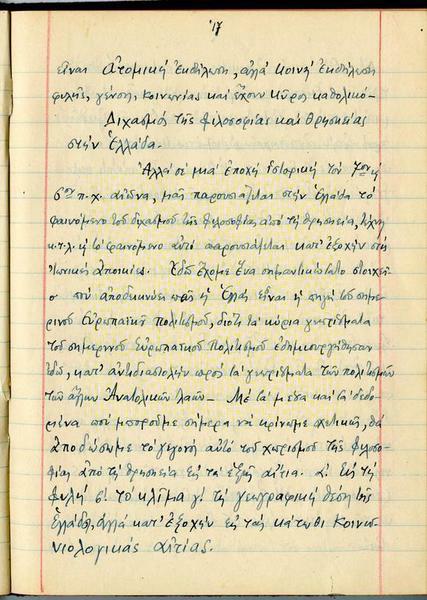 17
εἶναι ἀτομική ἐκδήλωση, ἀλλά κοινή ἐκδήλωση
φυλῆς, γένους, κοινωνίας καί ἔχουν κῦρος καθολικό –
Διχασμός τῆς φιλοσοφίας καί θρησκείας
στήν Ἑλλάδα.
Ἀλλά σέ μιά ἐποχή ἱστορική τόν 7ον ἤ
6ον π.χ. αἰῶνα, μᾶς παρουσιάζεται στήν Ἑλλάδα τό
φαινόμενο τοῦ διχασμοῦ τῆς φιλοσοφίας ἀπό τή θρησκεία, τέχνη
κ.τ.λ. κ τό φαινόμενο αὐτό παρουσιάζεται κατ' ἐξοχήν στίς
Ἰωνικές ἀποικίες. Ἐδῶ ἔχομε ἕνα σημαντικώτατο στοιχεῖ-
ο πού ἀποδεικνύει πώς ἡ Ἑλλάς εἶναι ἡ πηγή τοῦ σημε-
ρινοῦ Εὐρωπαϊκοῦ πολιτισμοῦ, διότι τά κύρια γνωρίσματα
τοῦ σημερινοῦ Εὐρωπαϊκοῦ Πολιτισμοῦ ἐδημιουργήθησαν
ἐδῶ, κατ' ἀντιδιαστολήν πρός τά γνωρίσματα τῶν πολιτισμῶν
τῶν ἄλλων Ἀνατολικῶν λαῶν – Μέ τά μέσα καί τά δεδο-
μένα πού μποροῦμε σήμερα νά κρίνωμε σχετικῶς, θά
ἀποδώσωμε τό γεγονός αὐτό τοῦ χωρισμοῦ τῆς φιλοσο-
φίας ἀπό τή θρησκεία εἰς τά ἑξῆς αἴτια. α) εἰς τή
φυλή β) τό κλῖμα γ) τή γεωγραφική θέση τῆς
Ἑλλάδος, ἀλλά κατ' ἐξοχήν εἰς τάς κάτωθι κοινω-
νιολογικάς αἰτίας.